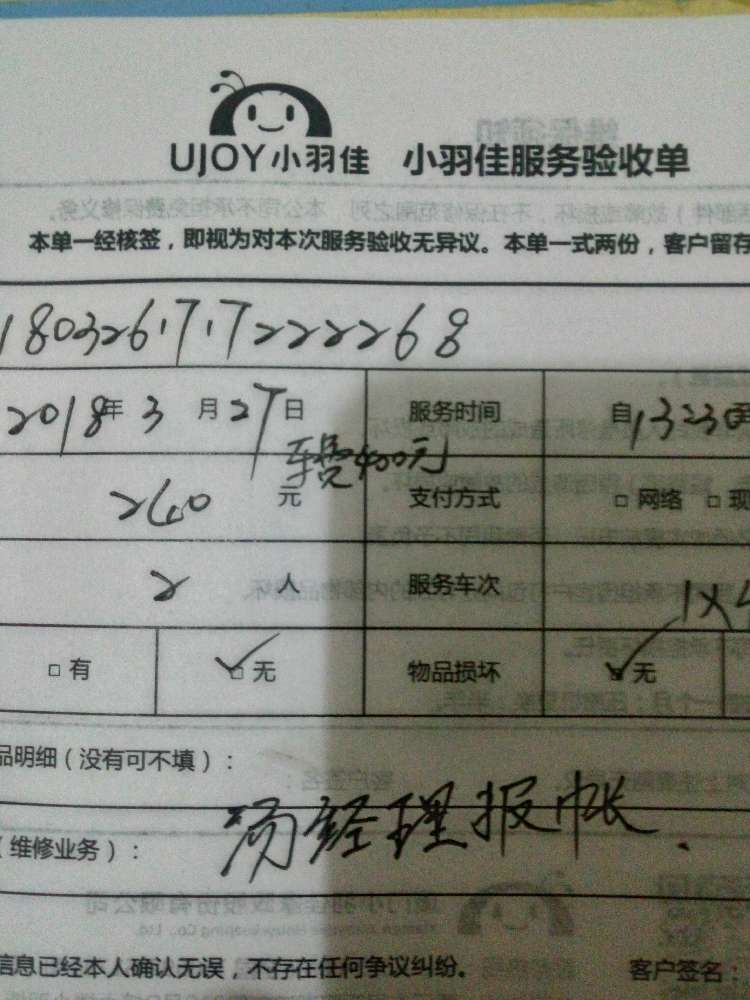 UJOY小羽佳 小羽佳服务验收单
本单一经核签，即视为对本次服务验收无异议。本单一式两份，客户留存
180326171722268
2018年 3 月 27 日 服务时间 自 13230 至
240 元 车费400元 支付方式 □ 网络 □ 现
2 人 服务车次 1X
□ 有 ☑ 无 物品损坏 ☑ 无
品明细（没有可不填）：
（维修业务）： 杨经理报帐.
信息已经本人确认无误，不存在任何争议纠纷。 客户签名：